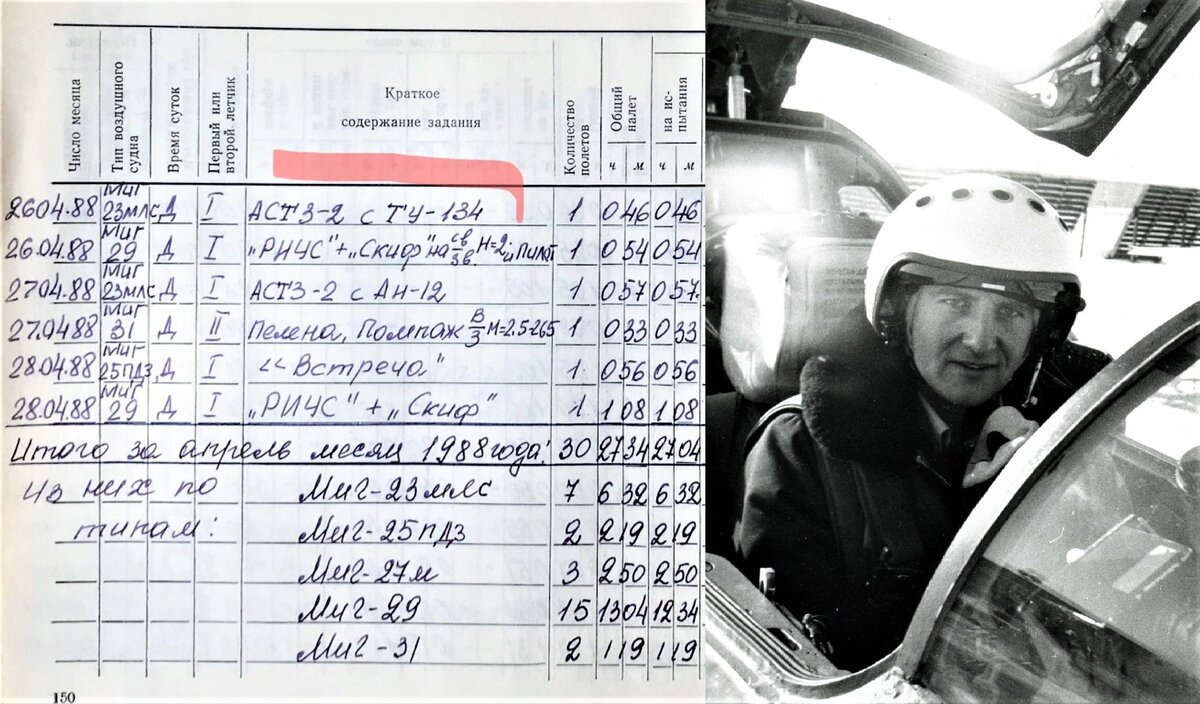 Число месяца
Тип воздушного судна
Время суток
Первый или второй летчик
Краткое
содержание задания
Количество полетов
Общий налет
на ис-
пытания
ч м ч м
26.04.88 Миг 23млс Д I АСТЗ-2 с ТУ-134 1 0 46 0 46
26.04.88 Миг 29 Д I „РИЧС"+„Скиф" на св/зв. H=2 и Пилот 1 0 54 0 54
27.04.88 Миг 23млс Д I АСТЗ-2 с Ан-12 1 0 57 0 57
27.04.88 Миг 31 Д II Пелена, Помпаж В/З М=2.5-2.65 1 0 33 0 33
28.04.88 Миг 25ПДЗ Д I «Встреча" 1 0 56 0 56
28.04.88 Миг 29 Д I „РИЧС"+„Скиф" 1 1 08 1 08
Итого за апрель месяц 1988 года: 30 27 34 27 04
Из них по Миг-23млс 7 6 32 6 32
типам: Миг-25пдз 2 2 19 2 19
Миг-27м 3 2 50 2 50
Миг-29 15 13 04 12 34
Миг-31 2 1 19 1 19
150